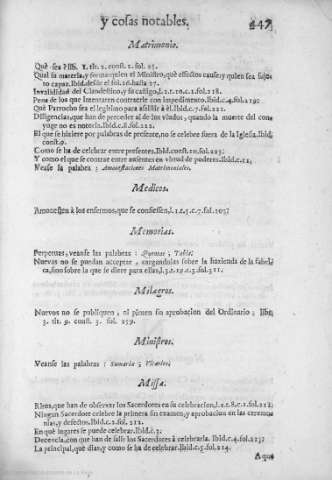 y cosas notables. 447
Matrimonio.
Què sea Illi. 1. tit. 2. const. 1. fol. 25.
Qual sa materia, y forma quien el Ministro, què effectos cause, y quien sea suje-
to capaz. Ibid. desde el fol. 26. hasta 27.
Invalididad del Clandestino, y su castigo, l. 1. t. 10. c. 1. fol. 218.
Pena de los que intentaren contraerle con impedimento. Ibid. c. 4. fol. 219.
Què Parrocho sea el legitimo para assistir à èl. Ibid. c. 7. fol. 221.
Diligencias, que han de preceder al de los viudos, quando la muerte del con
yuge no es notoria. Ibid. c. 8. fol. 222.
El que se hiziere por palabras de presente, no se celebre fuera de la Iglesia. Ibid.
const. 9.
Como se ha de celebrar entre presentes. Ibid. const. 10. fol. 223.
Y como el que se contrae entre ausentes en virtud de poderes. Ibid. c. 11.
Vease la palabra: Amonestaciones Matrimoniales.
Medicos.
Amonesten à los enfermos, que se confiessen, l. 1. t. 5. c. 7. fol. 205.
Memorias.
Perpetuas, veanse las palabras: Quentas; Tabla.
Nuevas no se puedan acceptar, cargandolas sobre la hazienda de la fabri-
ca, sino sobre la que se diere para ellas, l. 3. t. 19. c. 3. fol. 311.
Milagros.
Nuevos no se publiquen, ni pinten sin aprobacion del Ordinario, lib.
3. tit. 9. const. 3. fol. 259.
Ministros.
Veanse las palabras: Sumaria; Vicarios.
Missa.
Ritos, que han de observar los Sacerdotes en su celebracion, l. 1. t. 8. c. 1. fol. 212.
Ningun Sacerdote celebre la primera sin examen, y aprobacion en las ceremo-
nias, y defectos. Ibid. c. 2. fol. 212.
En què lugares se puede celebrar. Ibid. c. 3.
Decencia, con que han de salir los Sacerdotes à celebrarla. Ibid. c. 4. fol. 213.
La principal, què dias, y como se ha de celebrar. Ibid. c. 5. fol. 214.
A que